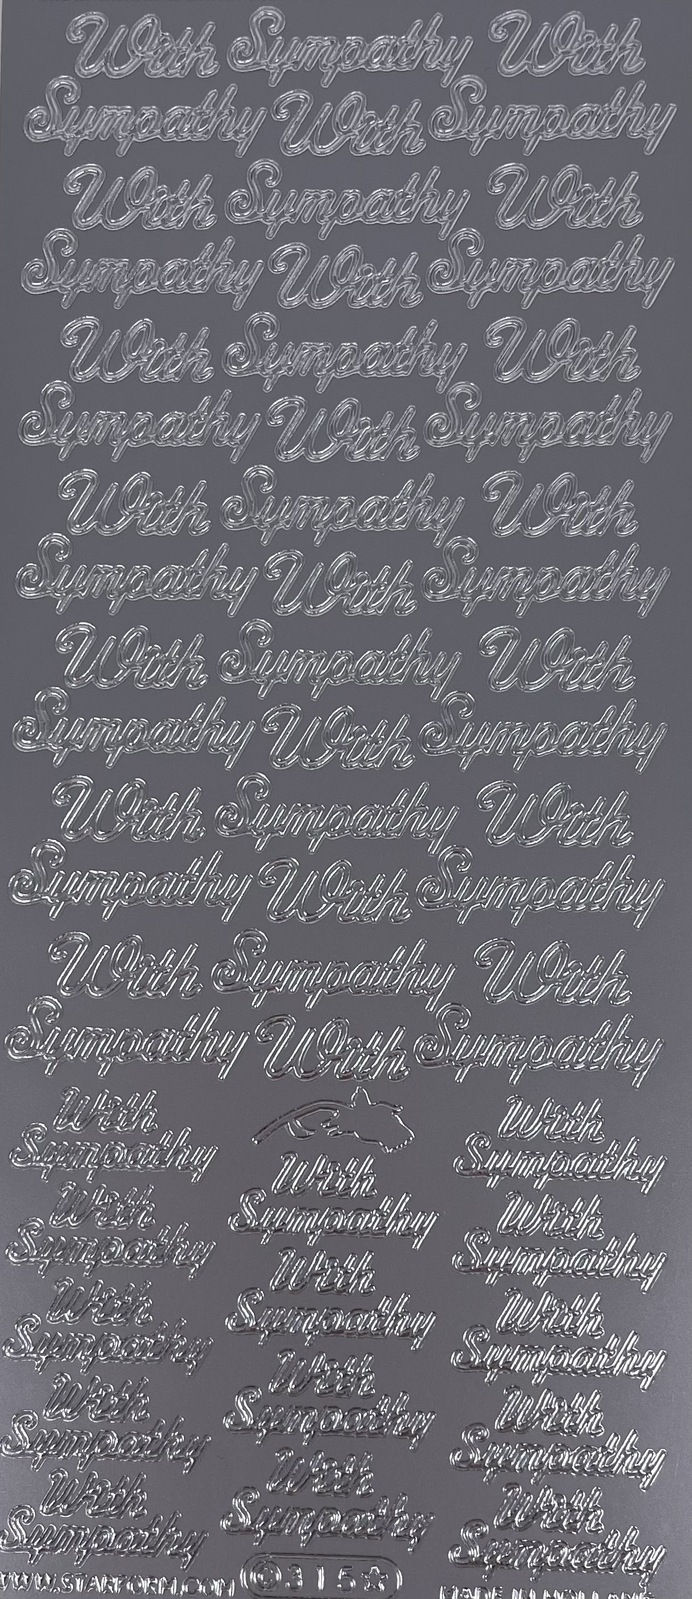 With Sympathy With
Sympathy With Sympathy
With Sympathy With
Sympathy With Sympathy
With Sympathy With
Sympathy With Sympathy
With Sympathy With
Sympathy With Sympathy
With Sympathy With
Sympathy With Sympathy
With Sympathy With
Sympathy With Sympathy
With Sympathy With
Sympathy With Sympathy
With
Sympathy
With
Sympathy
With
Sympathy
With
Sympathy
With
Sympathy
With
Sympathy
With
Sympathy
With
Sympathy
With
Sympathy
With
Sympathy
With
Sympathy
With
Sympathy
With
Sympathy
With
Sympathy
WWW.STARFORM.COM © 315☆ MADE IN HOLLAND